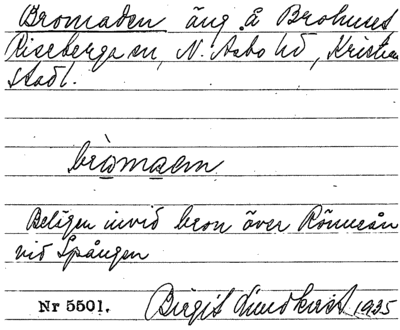 Bromaden äng å Brohuset
Riseberga sn, N. Åsbo hd, Kristian
stads l.
bròmaɛn
Belägen invid bron över Rönneån
vid Spången
Nr 5501. Birgit Lundkvist 1935